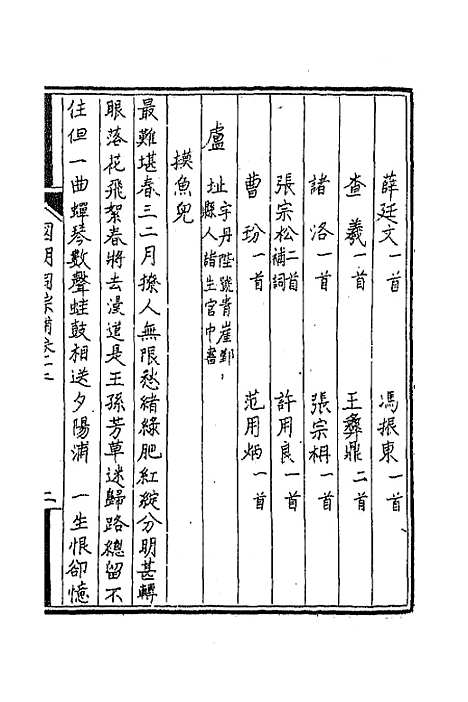 薛廷文一首　馮振東一首
查羲一首　王彝鼎二首
諸洛一首　張宗枬一首
張宗松二首補詞　許用良一首
曹玢一首　范用炳一首
盧址字丹陛號青崖鄞
縣人諸生官中書
摸魚兒
最難堪春三二月撩人無限愁緒綠肥紅綻分明甚轉
眼落花飛絮春將去漫道是王孫芳草迷歸路總留不
住但一曲蟬琴數聲蛙鼓相送夕陽浦　一生恨卻憶
國朝詞綜補卷二　二